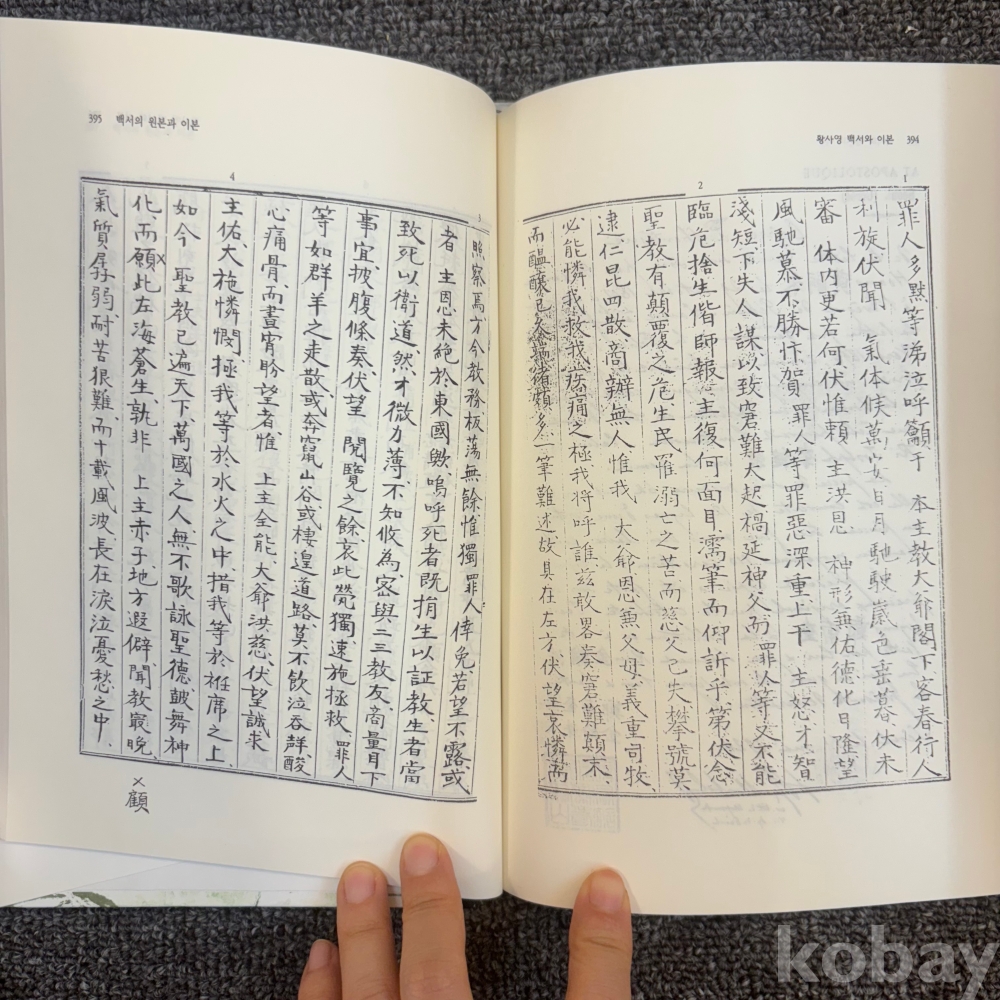 황사영 백서와 이본 394
1
2
罪人多黙等涕泣呼籲于 本主教大爺閣下客春行人
利旋伏聞 氣体候萬安日月馳駛歲色垂暮伏未
審 体内更若何伏惟賴 主洪恩 神形無佑德化日隆望
風馳慕不勝忭賀罪人等罪惡深重上干 主怒才智
淺短下失人謀以致窘難大起禍延神父而罪人等又不能
臨危捨生偕師報主復何面目濡筆而仰訴乎第伏念
聖教有顛覆之危生民罹溺亡之苦而慈父已失攀號莫
逮仁昆四散商辦無人惟我 大爺恩兼父母義重司牧
必能憐我救我疾痛之極我將呼誰玆敢畧奏窘難顛末
而醞釀已久 多一筆難述故具在左方伏望哀憐焉
395 백서의 원본과 이본
3
4
照察焉方今教務板荡無餘惟獨罪人倖免若望不露或
者 主恩未絶於東國歟嗚呼死者既捐生以証教生者當
致死以衛道然才微力薄不知攸為密與二三教友商量目下
事宜披腹條奏伏望 閲覽之餘哀此煢獨速施拯救罪人
等如群羊之走散或奔竄山谷或棲遑道路莫不飲泣吞聲酸
心痛骨而晝宵盻望者惟 上主全能大爺洪慈伏望誠求
主佑大施憐憫拯我等於水火之中措我等於袵席之上
如今 聖教已遍天下萬國之人無不歌詠聖德皷舞神
化而願此左海蒼生孰非 上主赤子地方遐僻聞教最晚
氣質孱弱耐苦狠難而十載風波長在淚泣憂愁之中
×顧
kobay